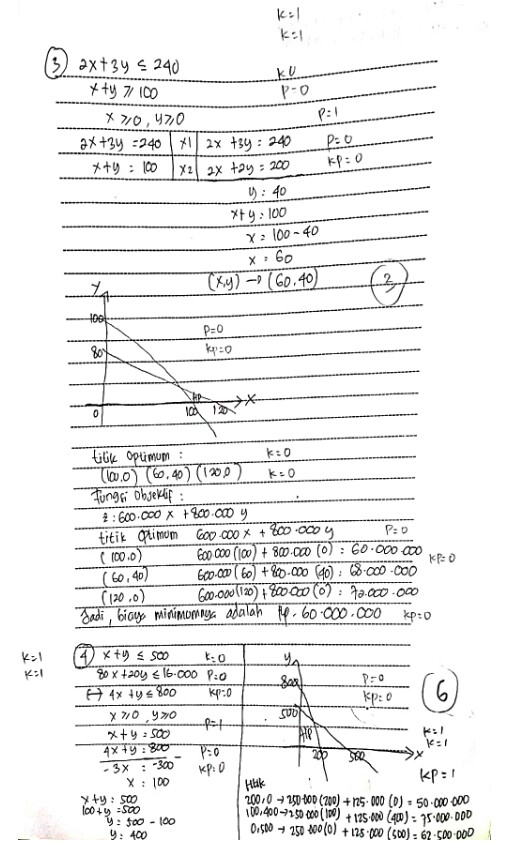 k=1
k=1
3 2x+3y ≤ 240
k=0
x+y ≥ 100
P=0
x ≥ 0, y ≥ 0
P=1
2x+3y = 240 | x1 | 2x + 3y = 240
P=0
x+y = 100 | x2 | 2x + 2y = 200
kp=0
y = 40
x+y = 100
x = 100-40
x = 60
(x,y) → (60,40)
Y
100
80
P=0
kp=0
HP
X
0
100
120
titik optimum :
k=0
(100,0) (60,40) (120,0)
k=0
Fungsi Objektif :
z = 600.000 x + 800.000 y
titik optimum 600.000 x + 800.000 y
P=0
(100,0) 600.000 (100) + 800.000 (0) = 60.000.000
kp=0
(60,40) 600.000 (60) + 800.000 (40) = 68.000.000
(120,0) 600.000 (120) + 800.000 (0) = 72.000.000
Jadi, biaya minimumnya adalah Rp. 60.000.000
kp=0
k=1
k=1
4 x+y ≤ 500
k=0
80x+20y ≤ 16.000
P=0
4x+y ≤ 800
kp=0
x ≥ 0, y ≥ 0
P=1
x+y = 500
4x+y = 800 -
P=0
-3x = -300
kp=0
x = 100
x+y = 500
100+y = 500
y = 500 - 100
y = 400
y
800
500
HP
200
500
x
P=0
kp=0
6
k=1
k=1
kp=1
titik
200,0 → 250.000 (200) + 125.000 (0) = 50.000.000
100,400 → 250.000 (100) + 125.000 (400) = 75.000.000
0,500 → 250.000 (0) + 125.000 (500) = 62.500.000